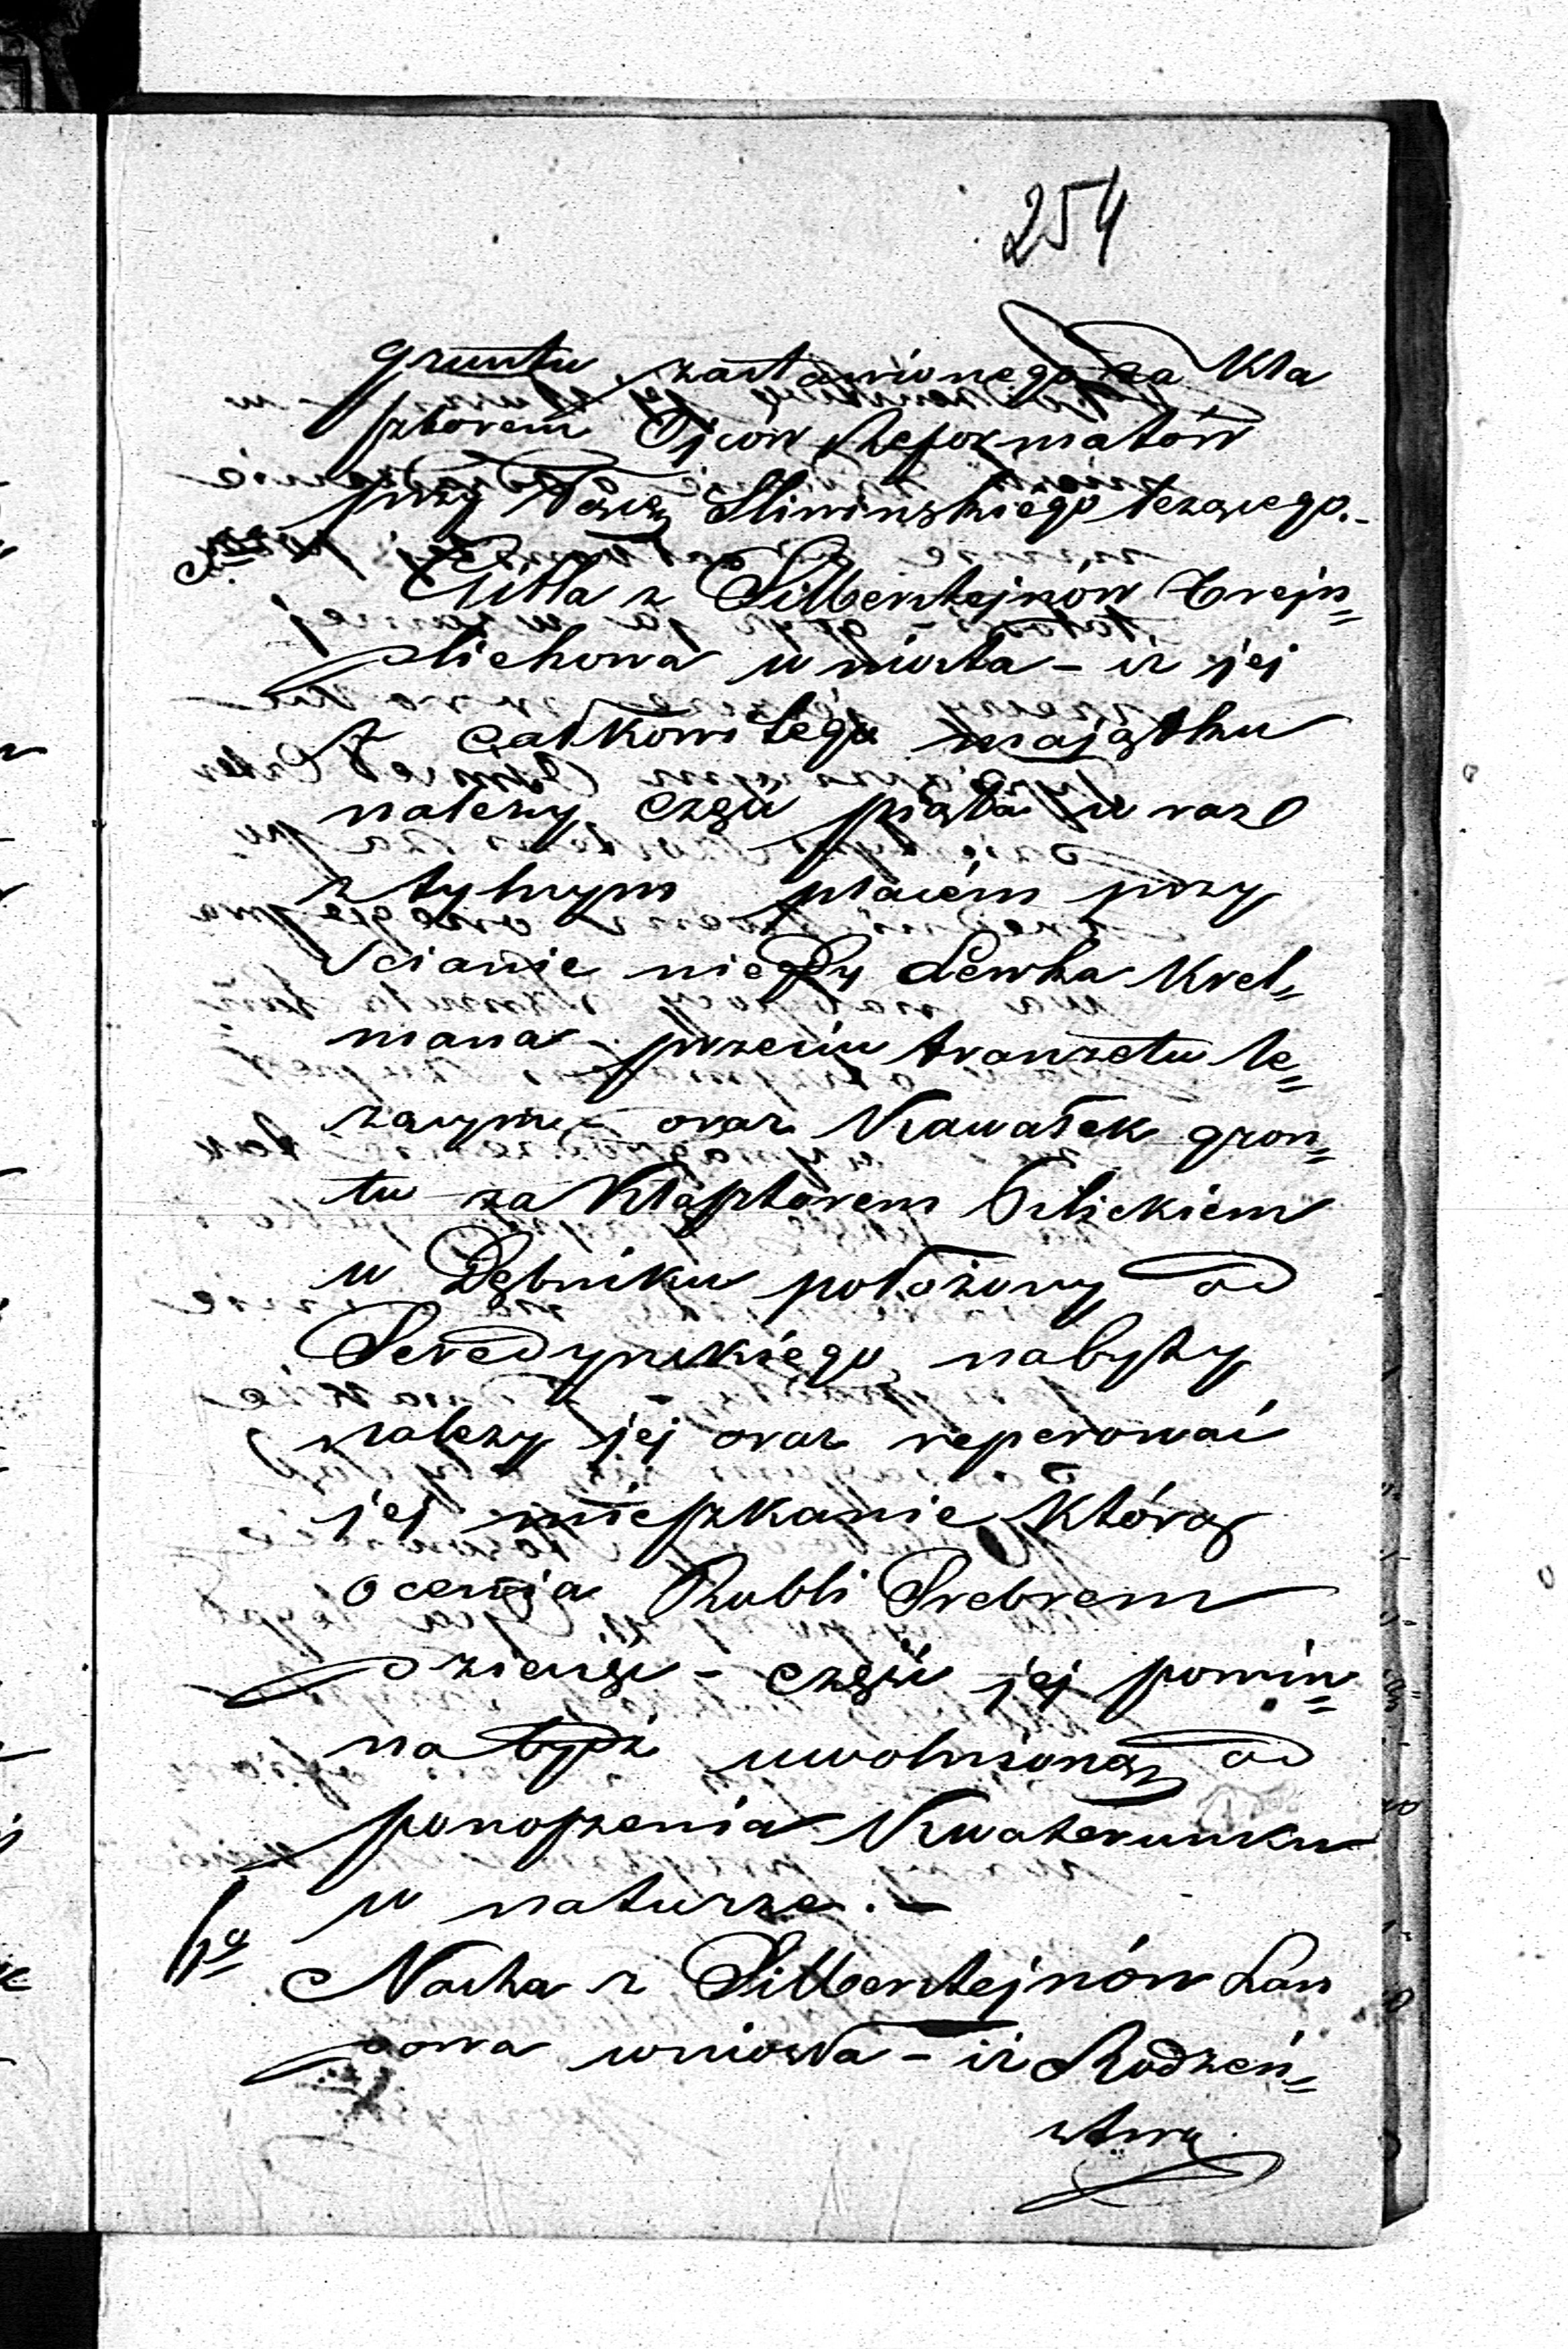 254
gruntu zastawionego za Kla
sztorem Ojców Reformatów
przy Śliwinskiego leżącego.-
Gitla z Silberstejnów Trejs=
tichowa wniosła - iż jej
z całkowitego majątku
należy część piąta w raz
z tylnym placem przy
scianie niegdy Lewka Krel=
mana - przeciw tranzetu le=
zącym - oraz Kawałek gron=
tu za Klasztorem
w Dębniku położony od
Seredyńskiego nabyty
należy jej oraz reperować
jej mieszkanie którą
ocenia Rubli Srebrem
dziewięć - część jej powin=
na bydź uwolnioną od
ponoszenia Kwaterunku
w naturze. -
Nacha z Silberstejnów Lan
dowa wniosła - iż Rodzeń=
stwu